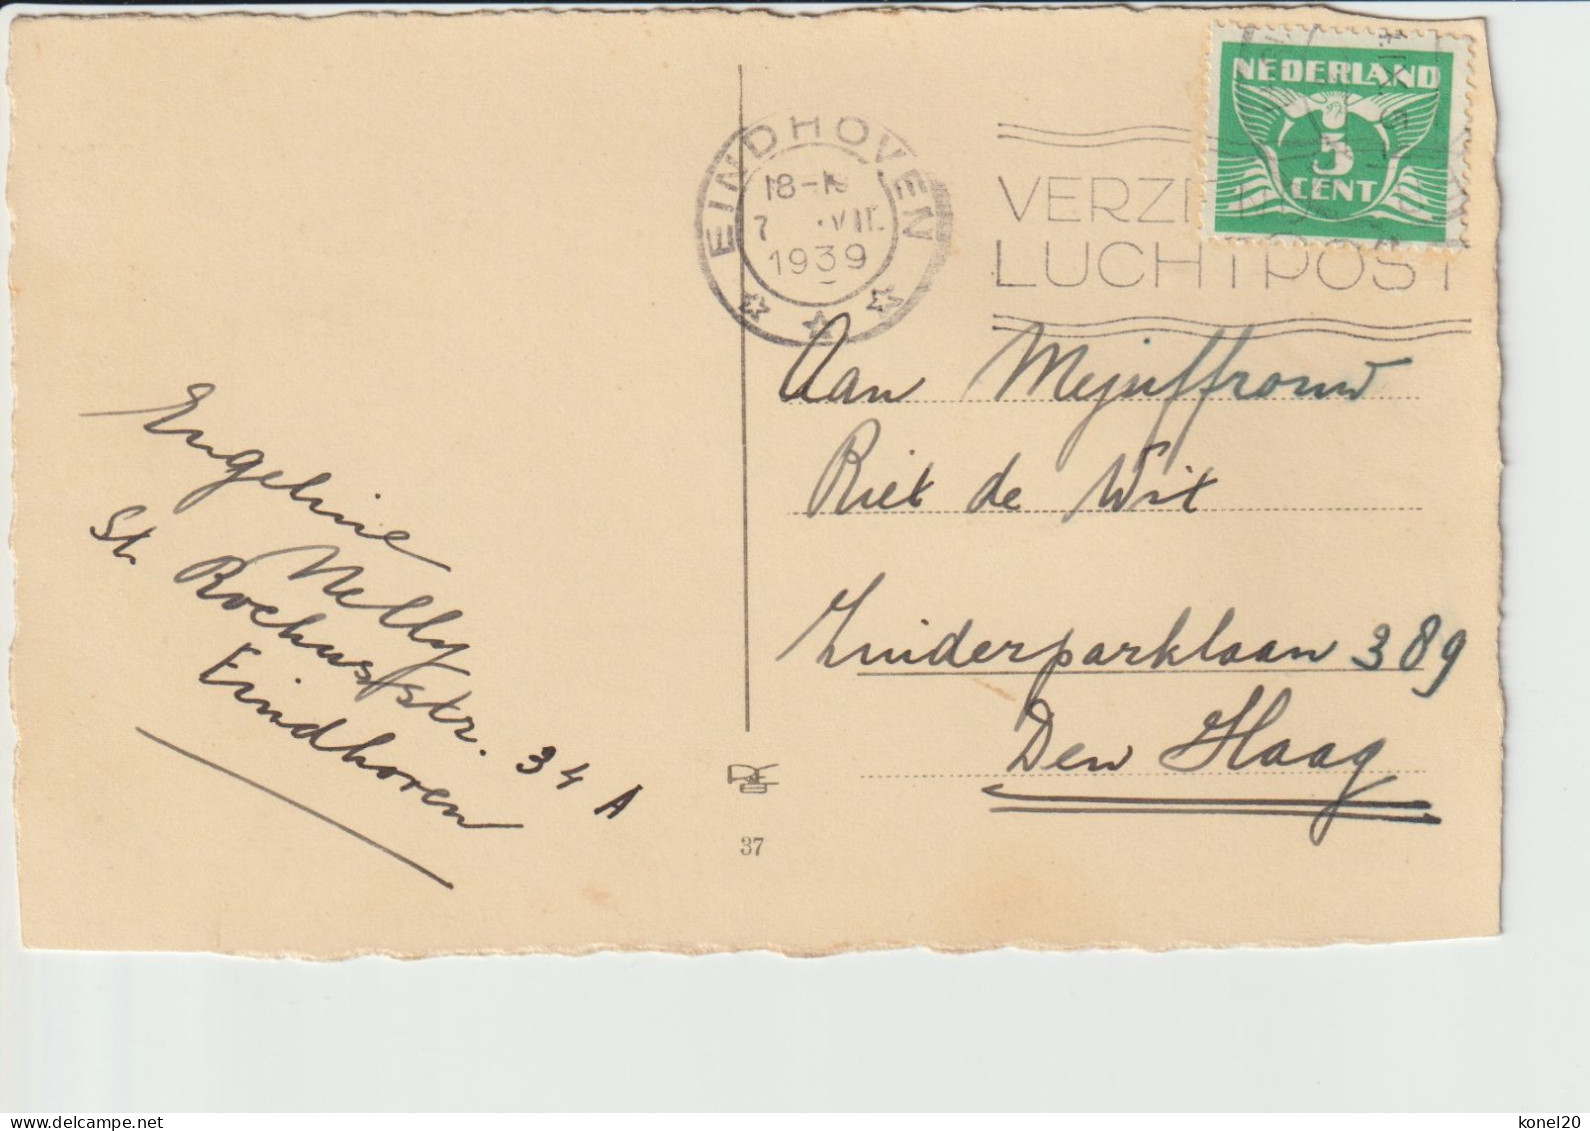 NEDERLAND
3
CENT
EINDHOVEN
18-19
7 .VII.
1939
VERZE
LUCHTPOST
Aan Mejuffrouw
Riet de Wit
Zuiderparklaan 389
Den Haag
Engeline
Nelly
St. Rochusstr. 34 A
Eindhoven
37
konel20